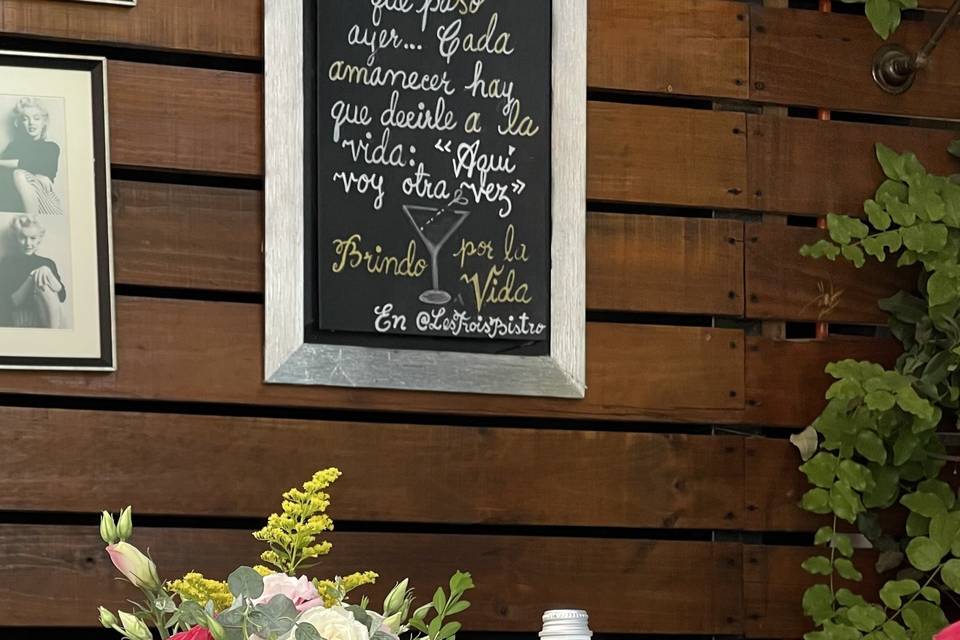 que paso
ayer... Cada
amanecer hay
que decirle a la
vida: "Aqui
voy otra vez"
Brindo por la
Vida
En @LesTroisBistro